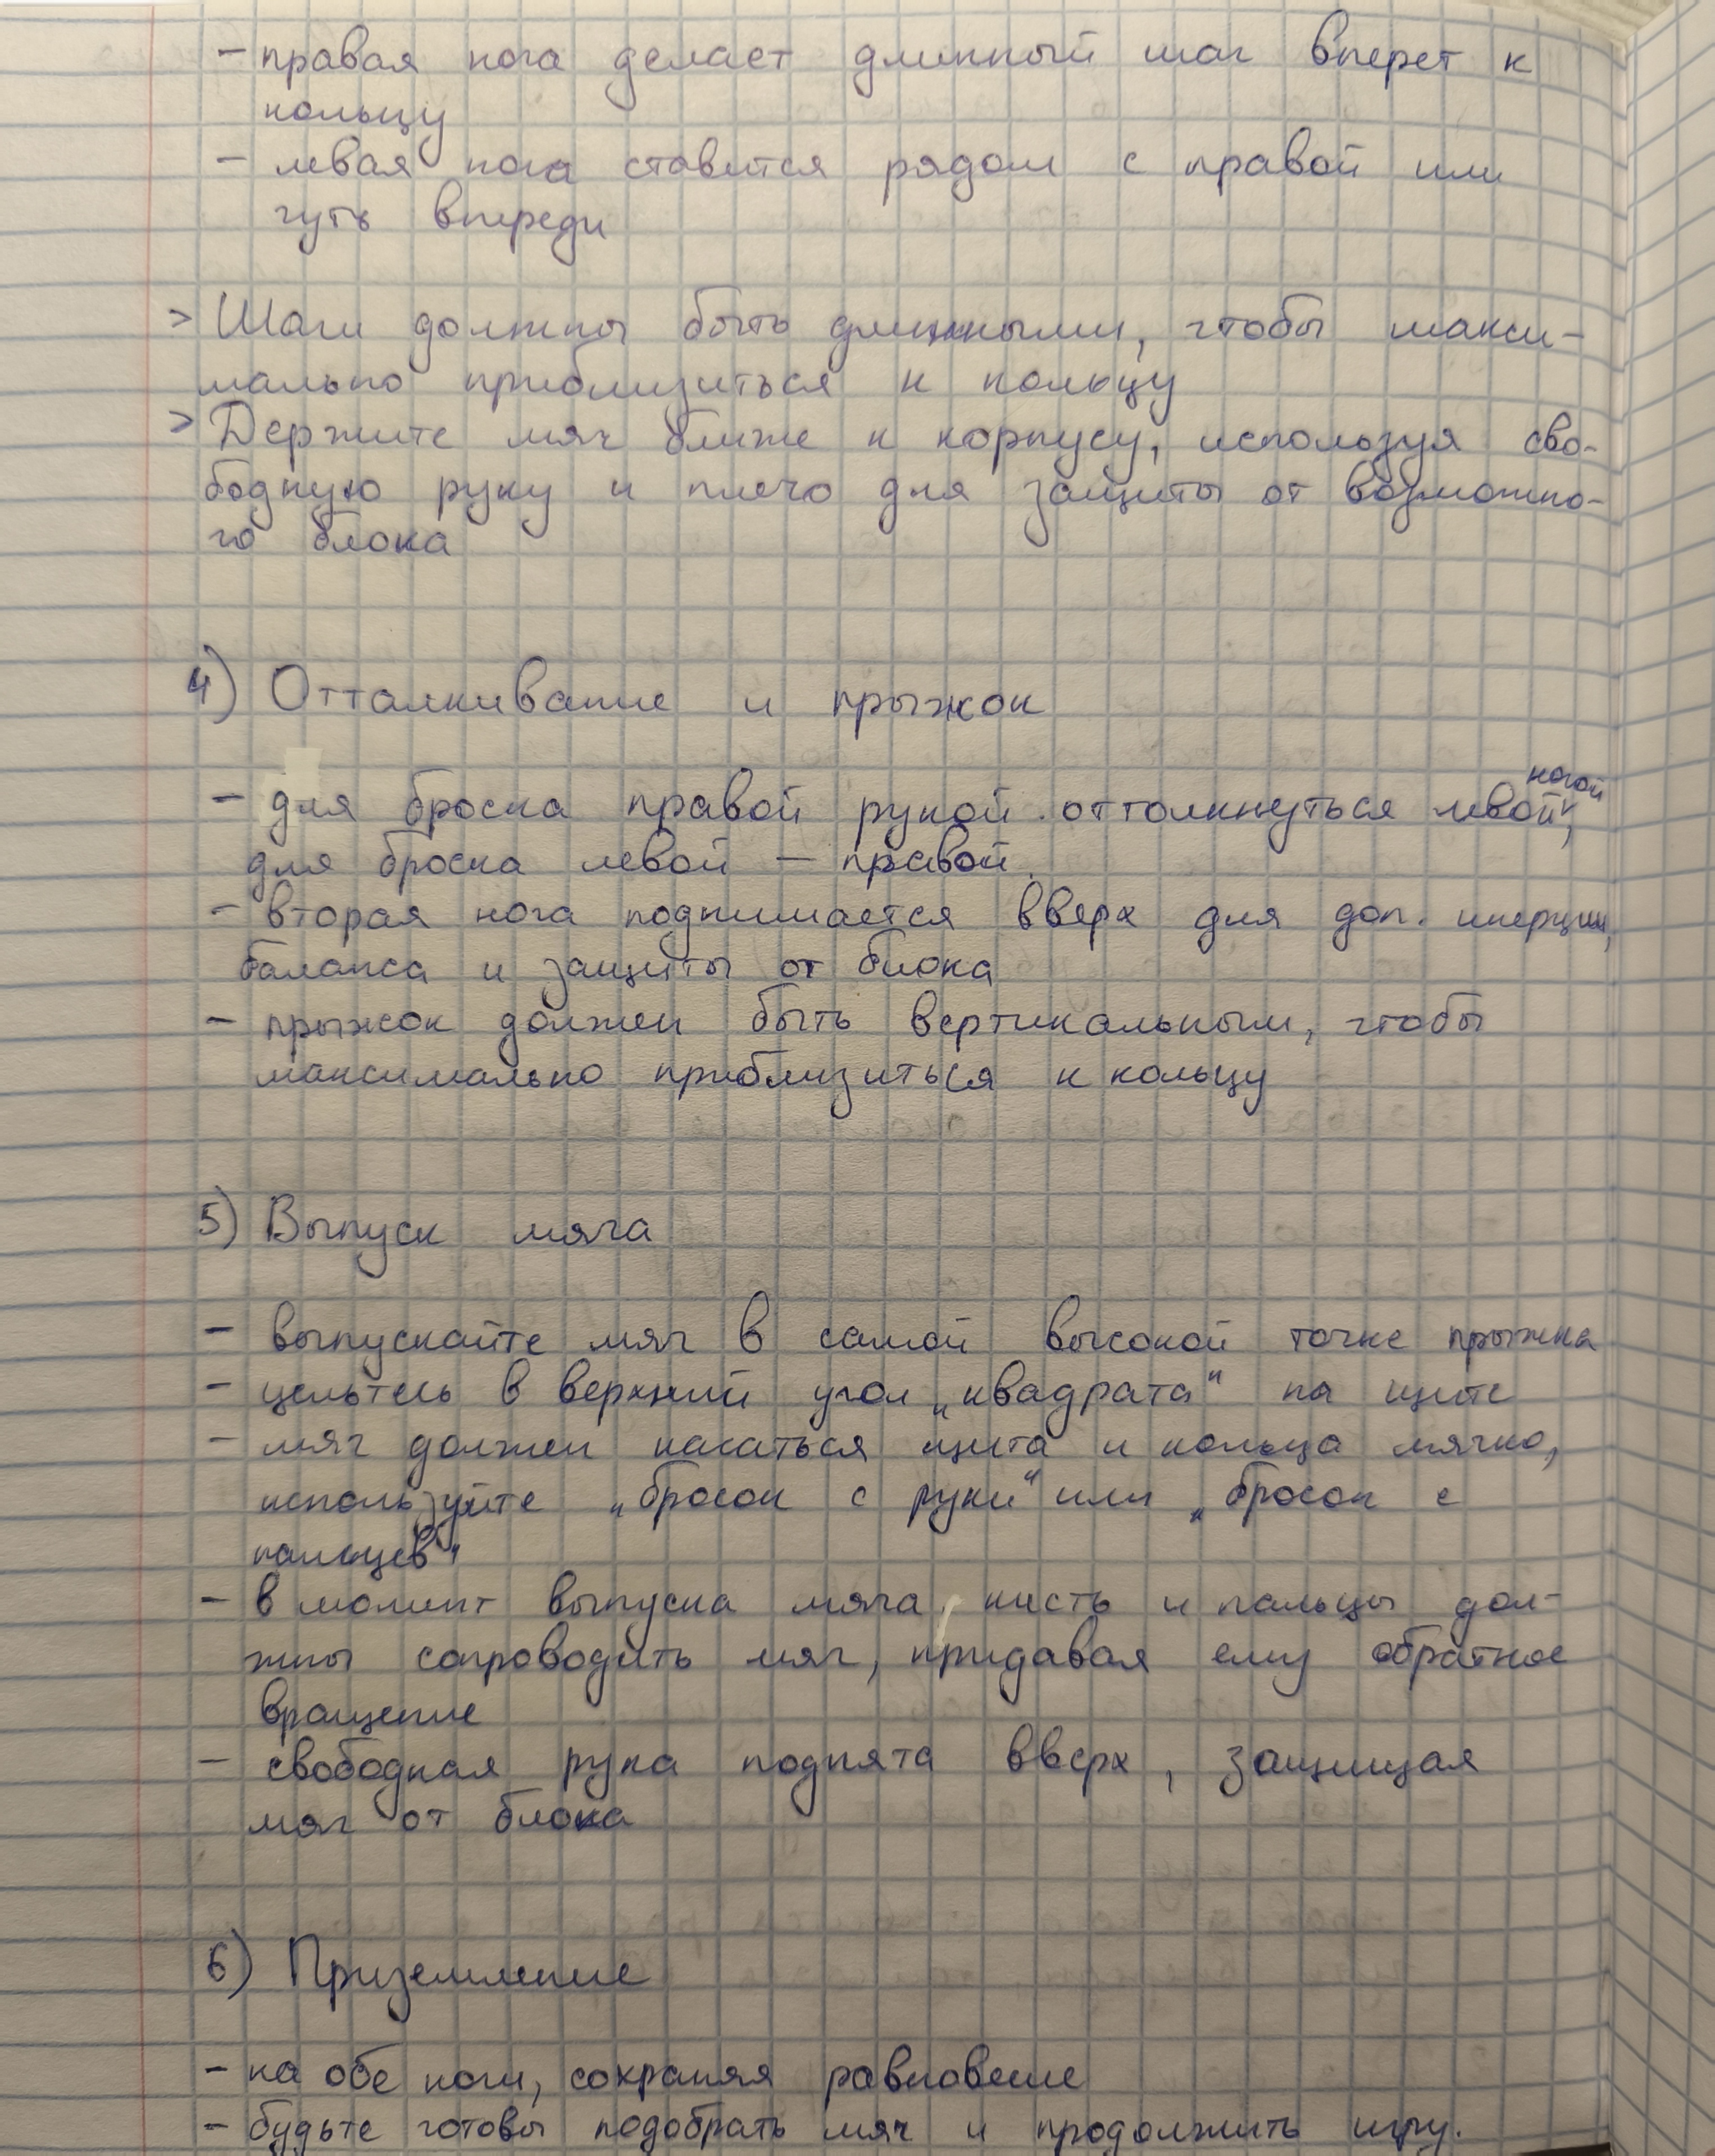 - правая нога делает длинный шаг вперет к
кольцу
- левая нога ставится рядом с правой или
чуть впереди
> Шаги должны быть длинными, чтобы макси-
мально приблизиться к кольцу
> Держите мяч ближе к корпусу, используя сво-
бодную руку и плечо для защиты от возможно-
го блока
4) Отталкивание и прыжок
ногой
- для броска правой рукой оттолкнуться левой,
для броска левой – правой.
- вторая нога поднимается вверх для доп. инерции,
баланса и защиты от блока
- прыжок должен быть вертикальным, чтобы
максимально приблизиться к кольцу
5) Выпуск мяча
- выпускайте мяч в самой высокой точке прыжка
- цельтесь в верхний угол „квадрата“ на щите
- мяч должен касаться щита и кольца мягко,
используйте „бросок с руки“ или „бросок с
пальцев“
- в момент выпуска мяча, кисть и пальцы дол-
жны сопроводить мяч, придавая ему обратное
вращение
- свободная рука поднята вверх, защищая
мяч от блока
6) Приземление
- на обе ноги, сохраняя равновесие
- будьте готовы подобрать мяч и продолжить игру.